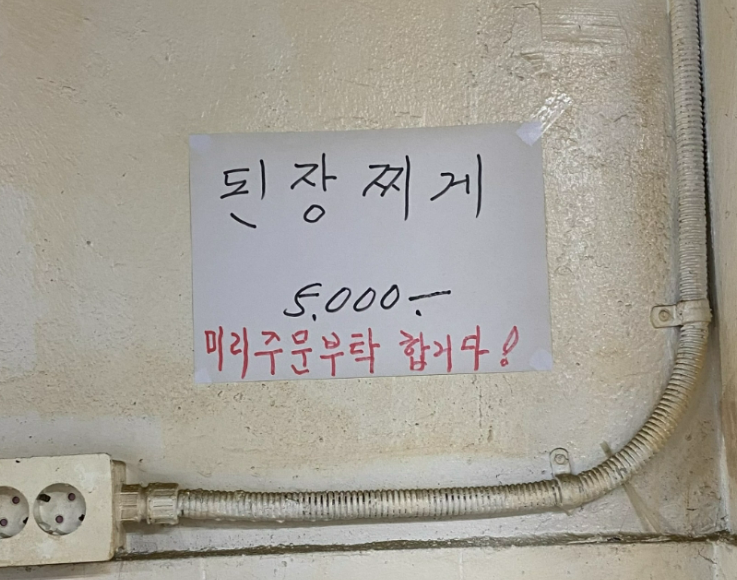 된장찌게
5.000.-
미리주문부탁 합니다!